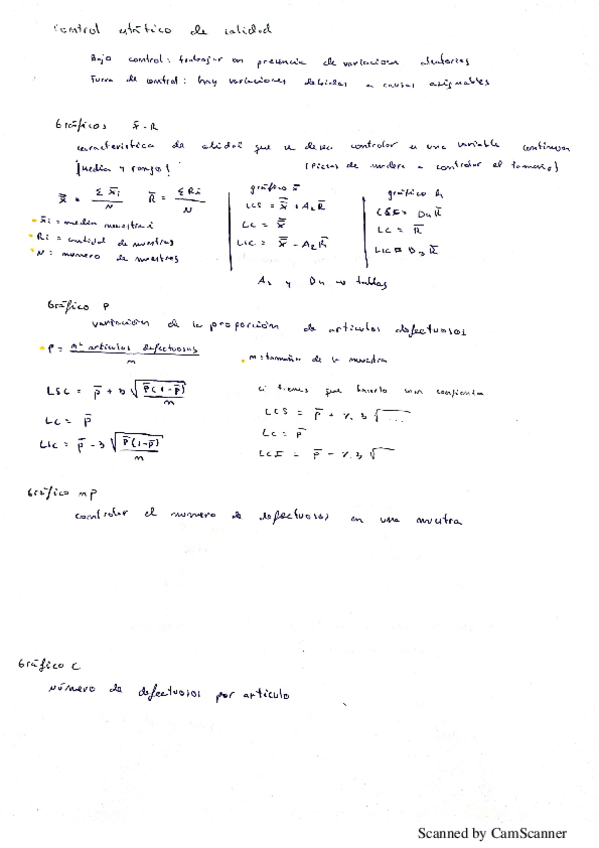 Control estático de calidad
Bajo control: trabajar en presencia de variaciones aleatorias
Fuera de control: hay variaciones debidas a causas asignables
Gráficos x̄-R
característica de calidad que se desea controlar es una variable continua
{Media y rango} (Piezas de madera controlar el tamaño)
x̿ = Σ x̄i / N R̄ = Σ Ri / N
x̄i = media muestra i
Ri = cantidad de muestras
N = numero de muestras
gráfico x̄
LCS = x̿ + A₂R̄
LC = x̿
LIC = x̿ - A₂R̄
gráfico R
LCS = D₄R̄
LC = R̄
LIC = D₃R̄
A₂ y D₄ tablas
Gráfico P
variación de la proporción de artículos defectuosos
P = nº artículos defectuosos / n
n: tamaño de la muestra
LSC = p̄ + 3 √(p̄(1-p̄)/n)
LC = p̄
LIC = p̄ - 3 √(p̄(1-p̄)/n)
si tienes que hacerlo con confianza
LCS = p̄ + %.3 √...
LC = p̄
LCI = p̄ - %.3 √
Gráfico np
controlar el numero de defectuosos en una muestra
Gráfico C
número de defectuosos por artículo
Scanned by CamScanner